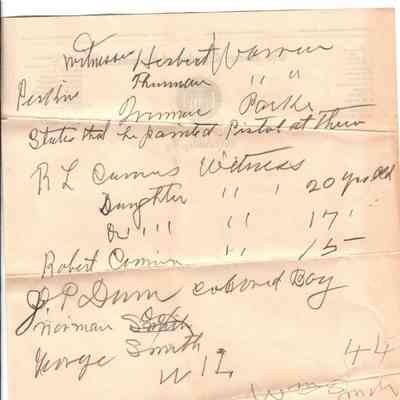 witnesses Herbert Warren
Thurman " "
Perkin Inman Parks
States that he pointed Pistol at them
R L Cumus Witness
Daughter " " 20 yrs old
" " " 17 "
Robert " 15
J. P. Dunn colored Boy
Norman Smith
George Smith
W 12 44